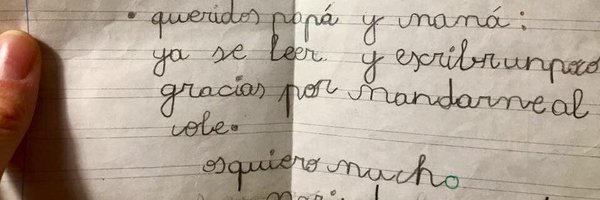 • queridos papá y mamá:
ya se leer y escribir un poco
gracias por mandarme al
cole.
os quiero mucho